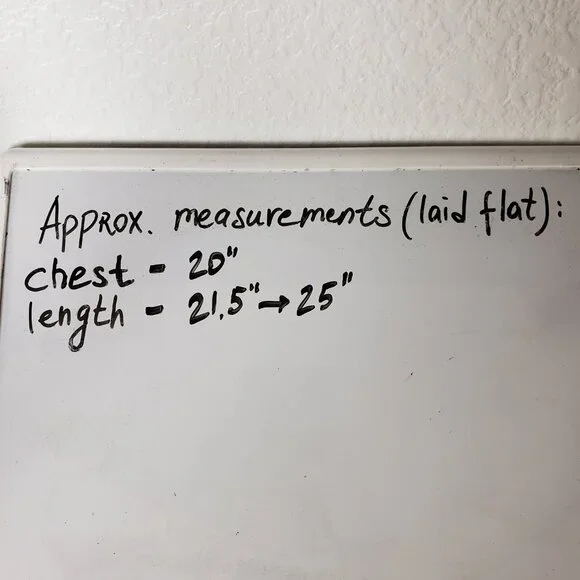 Approx. measurements (laid flat):
chest - 20"
length - 21.5" → 25"